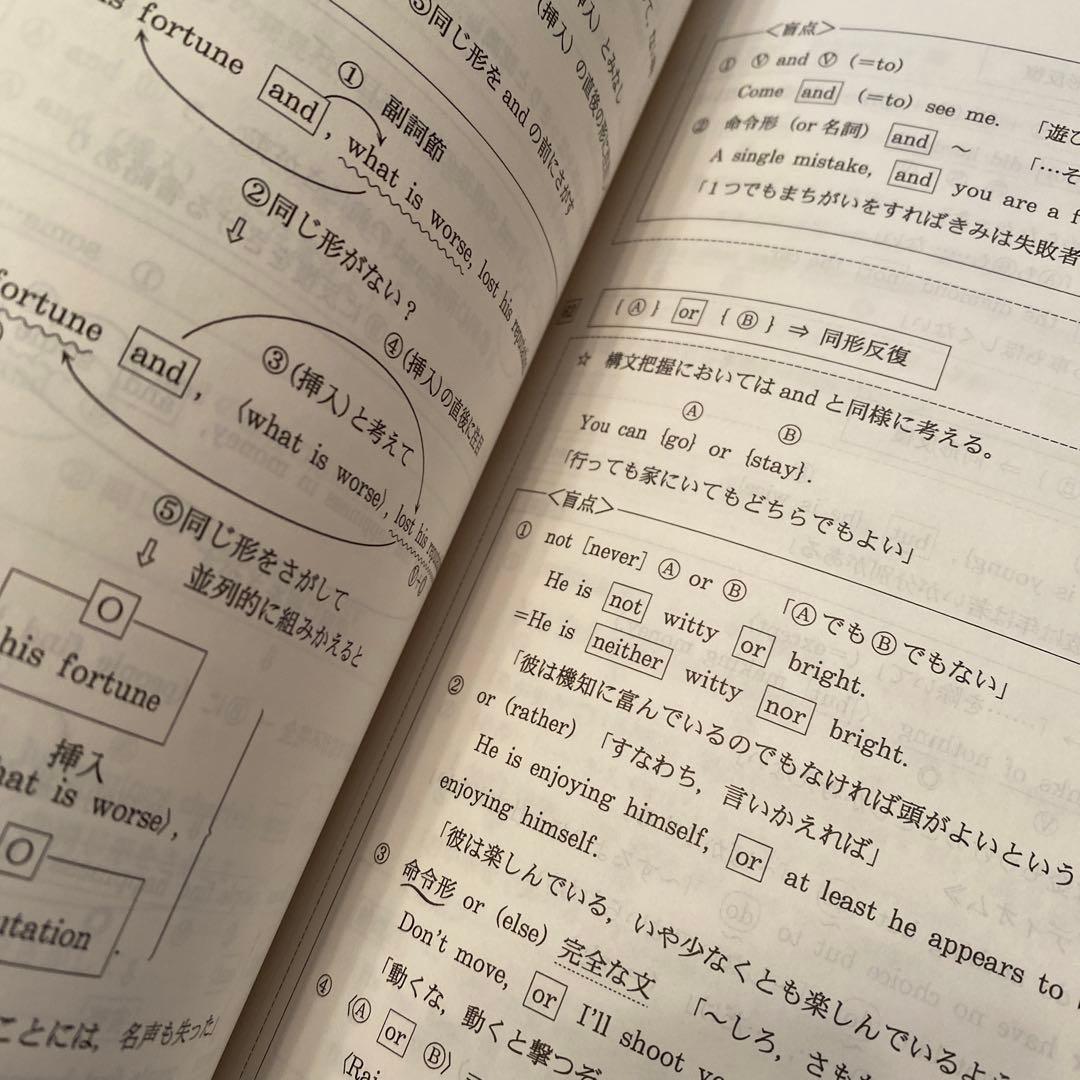 ⑤同じ形を and の前にさがす
(挿入) の直後の形に
(挿入) とみなし
fortune and, what is worse, lost his
① 副詞節
②同じ形がない?
⇩
fortune and, 〈what is worse〉, lost his
③(挿入)と考えて
④(挿入)の直後に注目
⑤同じ形をさがして
⇩ 並列的に組みかえると
O
his fortune
挿入
what is worse〉,
O
utation.
ことには,名声も失った」
〈盲点〉
① Ⓥ and Ⓥ (=to)
Come and (=to) see me. 「遊び
② 命令形 (or 名詞) and ~ 「…そ
A single mistake, and you are a f
「1つでもまちがいをすればきみは失敗者
{Ⓐ} or {Ⓑ} ⇒ 同形反復
☆ 構文把握においては and と同様に考える。
Ⓐ Ⓑ
You can {go} or {stay}.
「行っても家にいてもどちらでもよい」
〈盲点〉
① not [never] Ⓐ or Ⓑ 「ⒶでもⒷでもない」
He is not witty or bright.
=He is neither witty nor bright.
「彼は機知に富んでいるのでもなければ頭がよいという
② or (rather) 「すなわち,言いかえれば」
He is enjoying himself, or at least he appears to
enjoying himself.
「彼は楽しんでいる,いや少なくとも楽しんでいるよ
③ 命令形 or (else) 完全な文 「~しろ,さも
Don't move, or I'll shoot
「動くな,動くと撃つぞ
④ 〈Ⓐ or Ⓑ〉